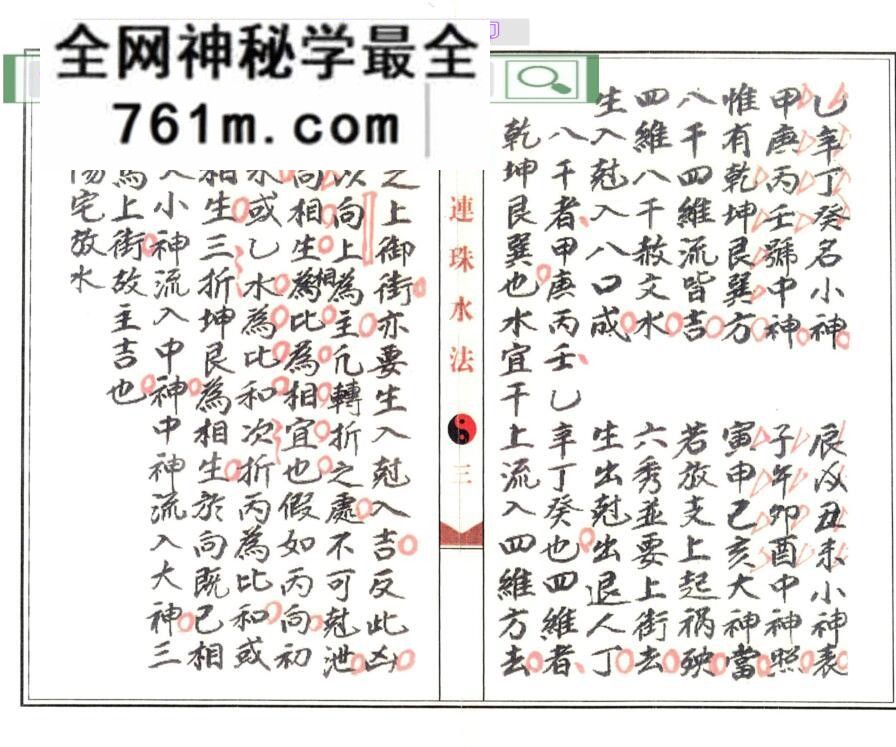 全网神秘学最全
761m.com
乙辛丁癸名小神 辰戌丑未小神表
甲庚丙壬號中神 子午卯酉中神照
惟有乾坤艮巽方 寅申巳亥大神當
八干四維流皆吉 若放支上起禍殃
四維八干赦文水 六秀並要上街去
生入尅入八口成 生出尅出退人丁
八干者甲庚丙壬乙辛丁癸也四維者
乾坤艮巽也水宜干上流入四維方去
連珠水法 三
之上御街亦要生入尅入吉反此凶
以向上為主凡轉折之處不可尅泄
向相生為相比為相宜也假如丙向初
水或乙水為比和次折丙為比和或
相生三折坤艮為相生於向既已相
入小神流入中神中神流入大神三
為上街故主吉也
陽宅放水